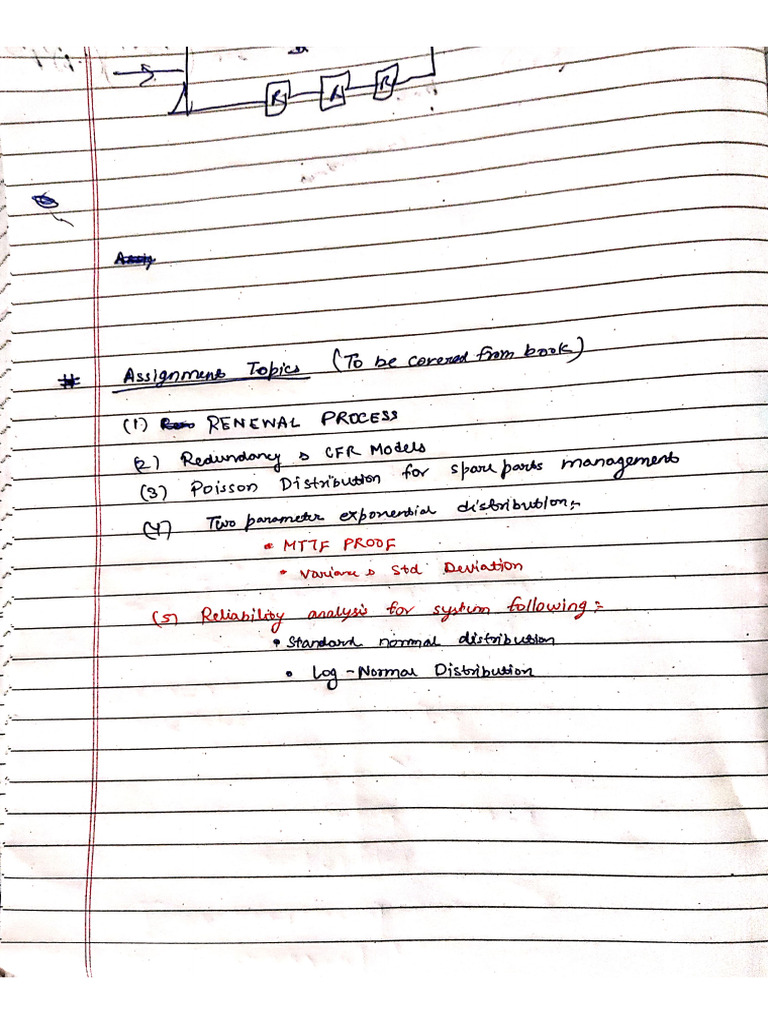 R R R
# Assignment Topics (To be covered from book)
(1) RENEWAL PROCESS
(2) Redundancy & CFR Models
(3) Poisson Distribution for spare parts management
(4) Two parameter exponential distribution:-
• MTTF PROOF
• Variance & Std Deviation
(5) Reliability analysis for system following:-
• Standard normal distribution
• Log-Normal Distribution